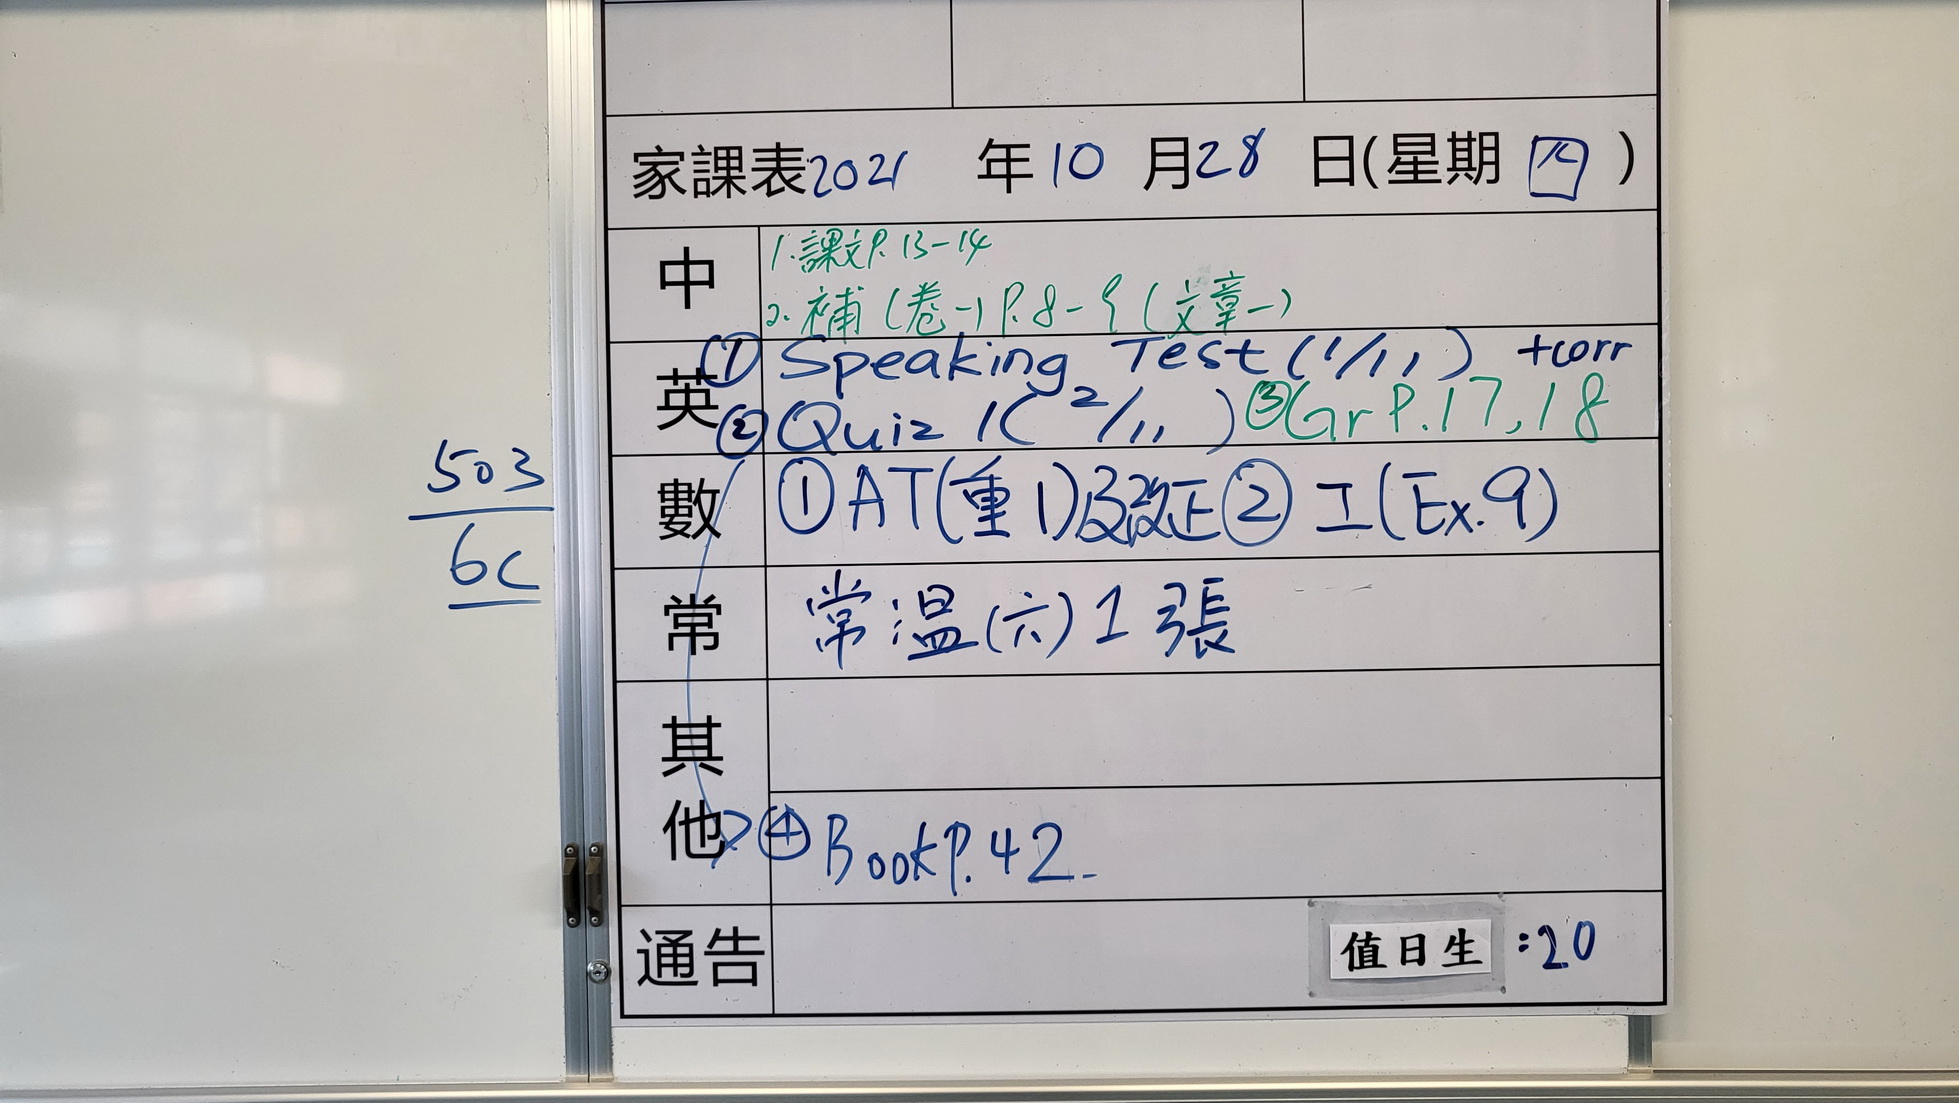 家課表2021 年10 月28 日(星期四)
中
1.課文P.13-14
2.補(卷一)P.8-9(文章一)
英
① Speaking Test (1/11) +corr
② Quiz 1( 2/11 ) ③Gr P.17,18
數
①AT(重1)及改正② 工(Ex.9)
常
常溫(六)1張
其他
④ Book P.42
通告
值日生:20
503
6C